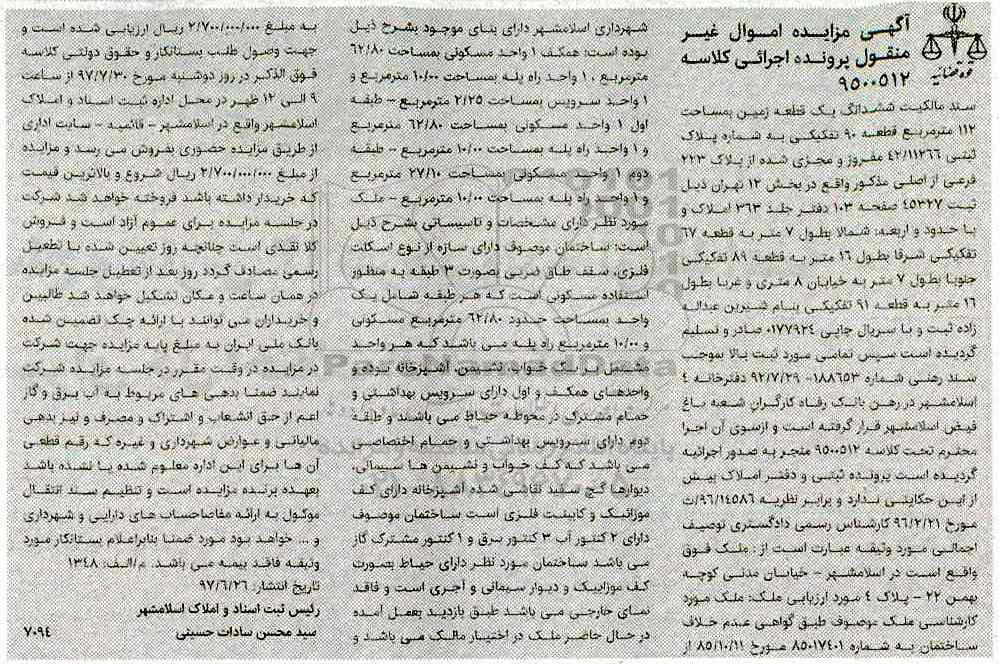 آگهی مزایده اموال غیر
منقول پرونده اجرائی کلاسه
۹۵۰۰۵۱۲
قوه قضائیه
سند مالکیت ششدانگ یک قطعه زمین بمساحت
۱۱۲ مترمربع قطعه ۹۰ تفکیکی به شماره پلاک
ثبتی ۴۲/۱۱۲۶۶ مفروز و مجزی شده از پلاک ۲۲۳
فرعی از اصلی مذکور واقع در بخش ۱۲ تهران ذیل
ثبت ۴۵۳۲۷ صفحه ۱۰۳ دفتر جلد ۳۶۳ املاک و
با حدود و اربعه: شمالا بطول ۷ متر به قطعه ۶۷
تفکیکی شرقا بطول ۱۶ متر به قطعه ۸۹ تفکیکی
جنوبا بطول ۷ متر به خیابان ۸ متری و غربا بطول
۱۶ متر به قطعه ۹۱ تفکیکی بنام شیرین عبداله
زاده ثبت و با سریال چاپی ۰۱۷۷۹۲۴ صادر و تسلیم
گردیده است سپس تمامی مورد ثبت بالا بموجب
سند رهنی شماره ۱۸۸۶۵۳- ۹۲/۷/۲۹ دفترخانه ۴
اسلامشهر در رهن بانک رفاه کارگران شعبه باغ
فیض اسلامشهر قرار گرفته است و ازسوی آن اجرا
محترم تحت کلاسه ۹۵۰۰۵۱۲ منجر به صدور اجرائیه
گردیده است پرونده ثبتی و دفتر املاک بیش
از این حکایتی ندارد و برابر نظریه ۹۶/۱۴۵۸۶/ت
مورخ ۹۶/۲/۲۱ کارشناس رسمی دادگستری توصیف
اجمالی مورد وثیقه عبارت است از : ملک فوق
واقع است در اسلامشهر - خیابان مدنی کوچه
بهمن ۲۲ - پلاک ۴ مورد ارزیابی ملک: ملک مورد
کارشناسی ملک موصوف طبق گواهی عدم خلاف
ساختمان به شماره ۸۵۰۱۷۴۰۱ مورخ ۸۵/۱۰/۱۱ از
شهرداری اسلامشهر دارای بنای موجود بشرح ذیل
بوده است: همکف ۱ واحد مسکونی بمساحت ۶۲/۸۰
مترمربع ، ۱ واحد راه پله بمساحت ۱۰/۰۰ مترمربع و
۱ واحد سرویس بمساحت ۲/۲۵ مترمربع - طبقه
اول ۱ واحد مسکونی بمساحت ۶۲/۸۰ مترمربع
و ۱ واحد راه پله بمساحت ۱۰/۰۰ مترمربع - طبقه
دوم ۱ واحد مسکونی بمساحت ۲۷/۱۰ مترمربع
و ۱ واحد راه پله بمساحت ۱۰/۰۰ مترمربع - ملک
مورد نظر دارای مشخصات و تاسیساتی بشرح ذیل
است: ساختمان موصوف دارای سازه از نوع اسکلت
فلزی، سقف طاق ضربی بصورت ۳ طبقه به منظور
استفاده مسکونی است که هر طبقه شامل یک
واحد بمساحت حدود ۶۲/۸۰ مترمربع مسکونی
و ۱۰/۰۰ مترمربع راه پله می باشد که هر واحد
مشتمل برتک خواب، نشیمن، آشپزخانه بوده و
واحدهای همکف و اول دارای سرویس بهداشتی و
حمام مشترک در محوطه حیاط می باشند و طبقه
دوم دارای سرویس بهداشتی و حمام اختصاصی
می باشد که کف خواب و نشیمن ها سیمانی،
دیوارها گچ سفید نقاشی شده آشپزخانه دارای کف
موزائیک و کابینت فلزی است ساختمان موصوف
دارای ۲ کنتور آب ۳ کنتور برق و ۱ کنتور مشترک گاز
می باشد ساختمان مورد نظر دارای حیاط بصورت
کف موزاییک و دیوار سیمانی و آجری است و فاقد
نمای خارجی می باشد طبق بازدید بعمل آمده
در حال حاضر ملک در اختیار مالک می باشد و
به مبلغ ۲/۷۰۰/۰۰۰/۰۰۰ ریال ارزیابی شده است و
جهت وصول طلب بستانکار و حقوق دولتی کلاسه
فوق الذکر در روز دوشنبه مورخ ۹۷/۷/۳۰ از ساعت
۹ الی ۱۲ ظهر در محل اداره ثبت اسناد و املاک
اسلامشهر واقع در اسلامشهر - قائمیه - سایت اداری
از طریق مزایده حضوری بفروش می رسد و مزایده
از مبلغ ۲/۷۰۰/۰۰۰/۰۰۰ ریال شروع و بالاترین قیمت
که خریدار داشته باشد فروخته خواهد شد شرکت
در جلسه مزایده برای عموم آزاد است و فروش
کلا نقدی است چنانچه روز تعیین شده با تعطیل
رسمی مصادف گردد روز بعد از تعطیل جلسه مزایده
در همان ساعت و مکان تشکیل خواهد شد طالبین
و خریداران می توانند با ارائه چک تضمین شده
بانک ملی ایران به مبلغ پایه مزایده جهت شرکت
در مزایده در وقت مقرر در جلسه مزایده شرکت
نمایند ضمنا بدهی های مربوط به آب برق و گاز
اعم از حق انشعاب و اشتراک و مصرف و نیز بدهی
مالیاتی و عوارض شهرداری و غیره که رقم قطعی
آن ها برای این اداره معلوم شده یا نشده باشد
بعهده برنده مزایده است و تنظیم سند انتقال
موکول به ارائه مفاصاحساب های دارایی و شهرداری
و ... خواهد بود مورد ضمنا بنابراعلام بستانکار مورد
وثیقه فاقد بیمه می باشد. م/الف: ۱۳۴۸
تاریخ انتشار: ۹۷/۶/۲۶
رئیس ثبت اسناد و املاک اسلامشهر
سید محسن سادات حسینی
۷۰۹۴
ParsNamadData